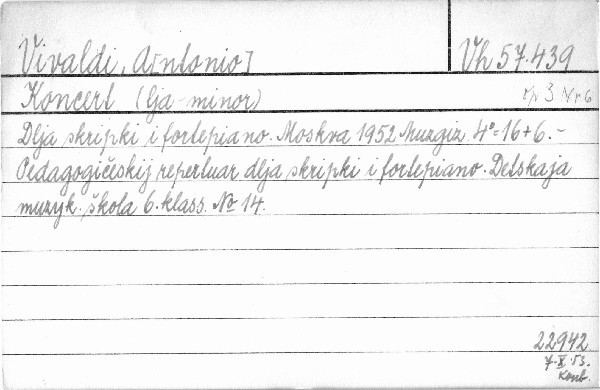 Vivaldi, A[ntonio] Vh 57.439
Koncert (lja-minor) op 3 Nr 6
Dlja skripki i fortepiano. Moskva 1952 Muzgiz 4°=16+6.-
Pedagogičeskij repertuar dlja skripki i fortepiano. Detskaja
muzyk. škola 6. klass. No 14.
22942
7.X.53.